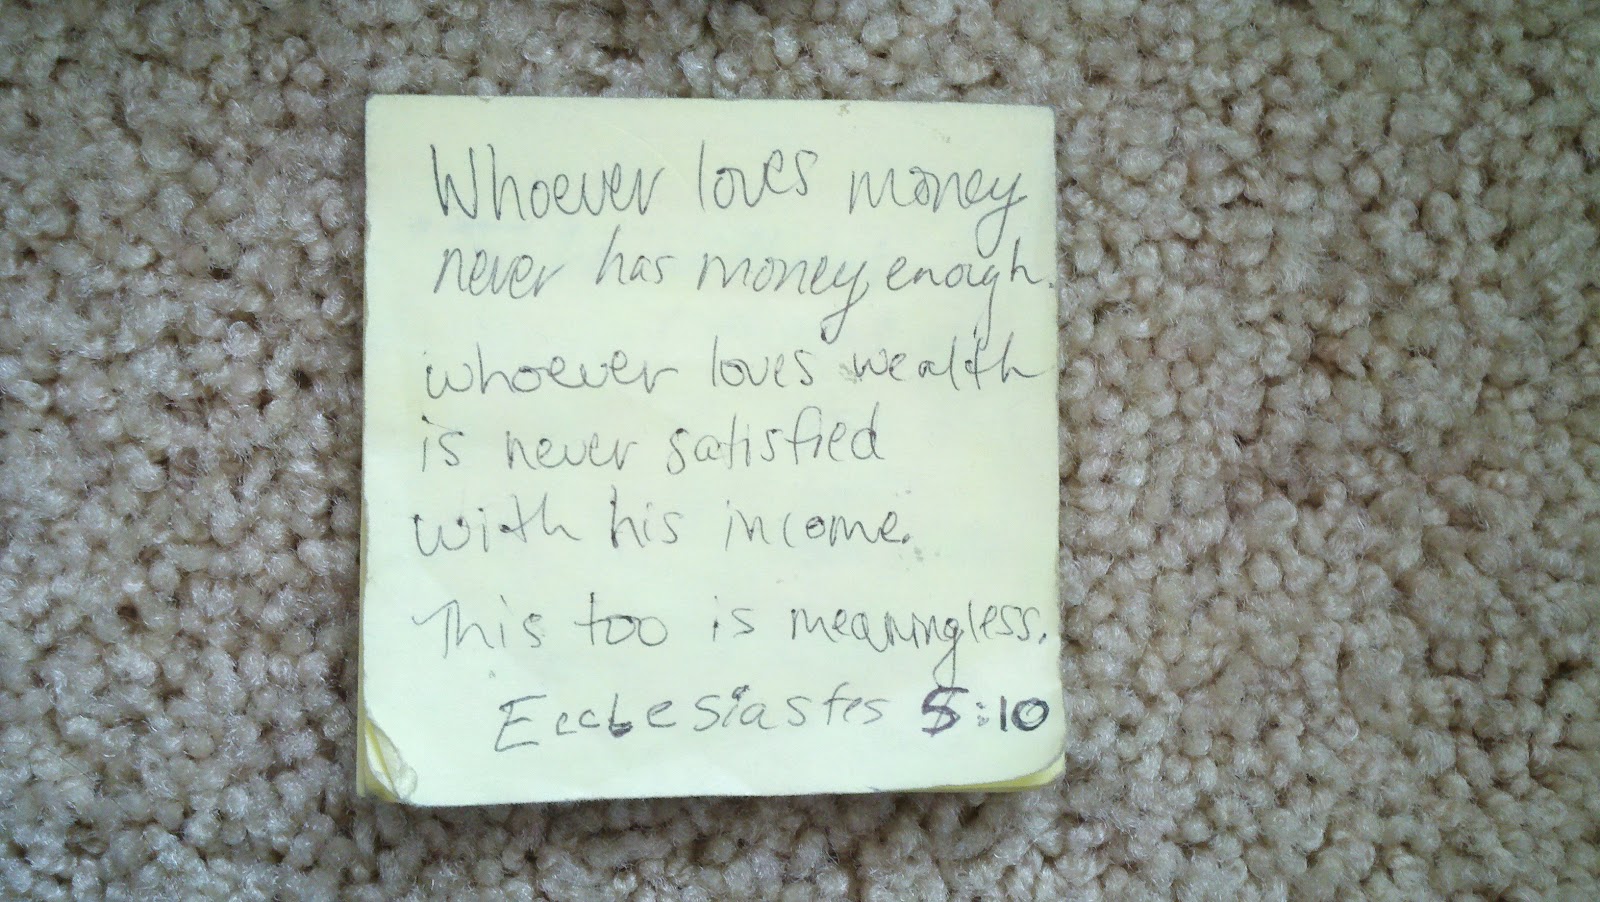 Whoever loves money
never has money enough.
whoever loves wealth
is never satisfied
with his income.
This too is meaningless.
Ecclesiastes 5:10